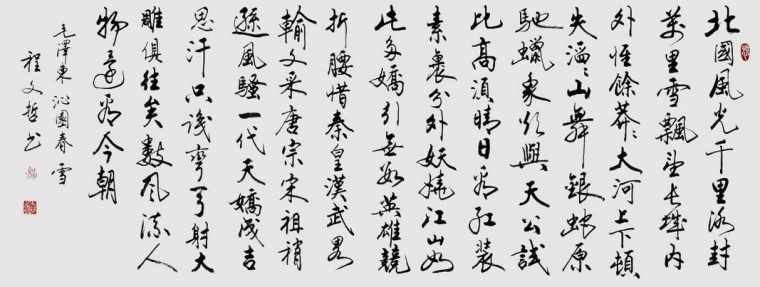 北國風光千里冰封
萬里雪飄望長城內
外惟餘莽莽大河上下頓
失滔滔山舞銀蛇原
馳蠟象欲與天公試
比高須晴日看紅装
素裹分外妖娆江山如
此多嬌引無數英雄競
折腰惜秦皇漢武略
輸文采唐宗宋祖稍
遜風騷一代天嬌成吉
思汗只識彎弓射大
雕俱往矣數風流人
物還看今朝
毛澤東沁園春雪
程文哲书